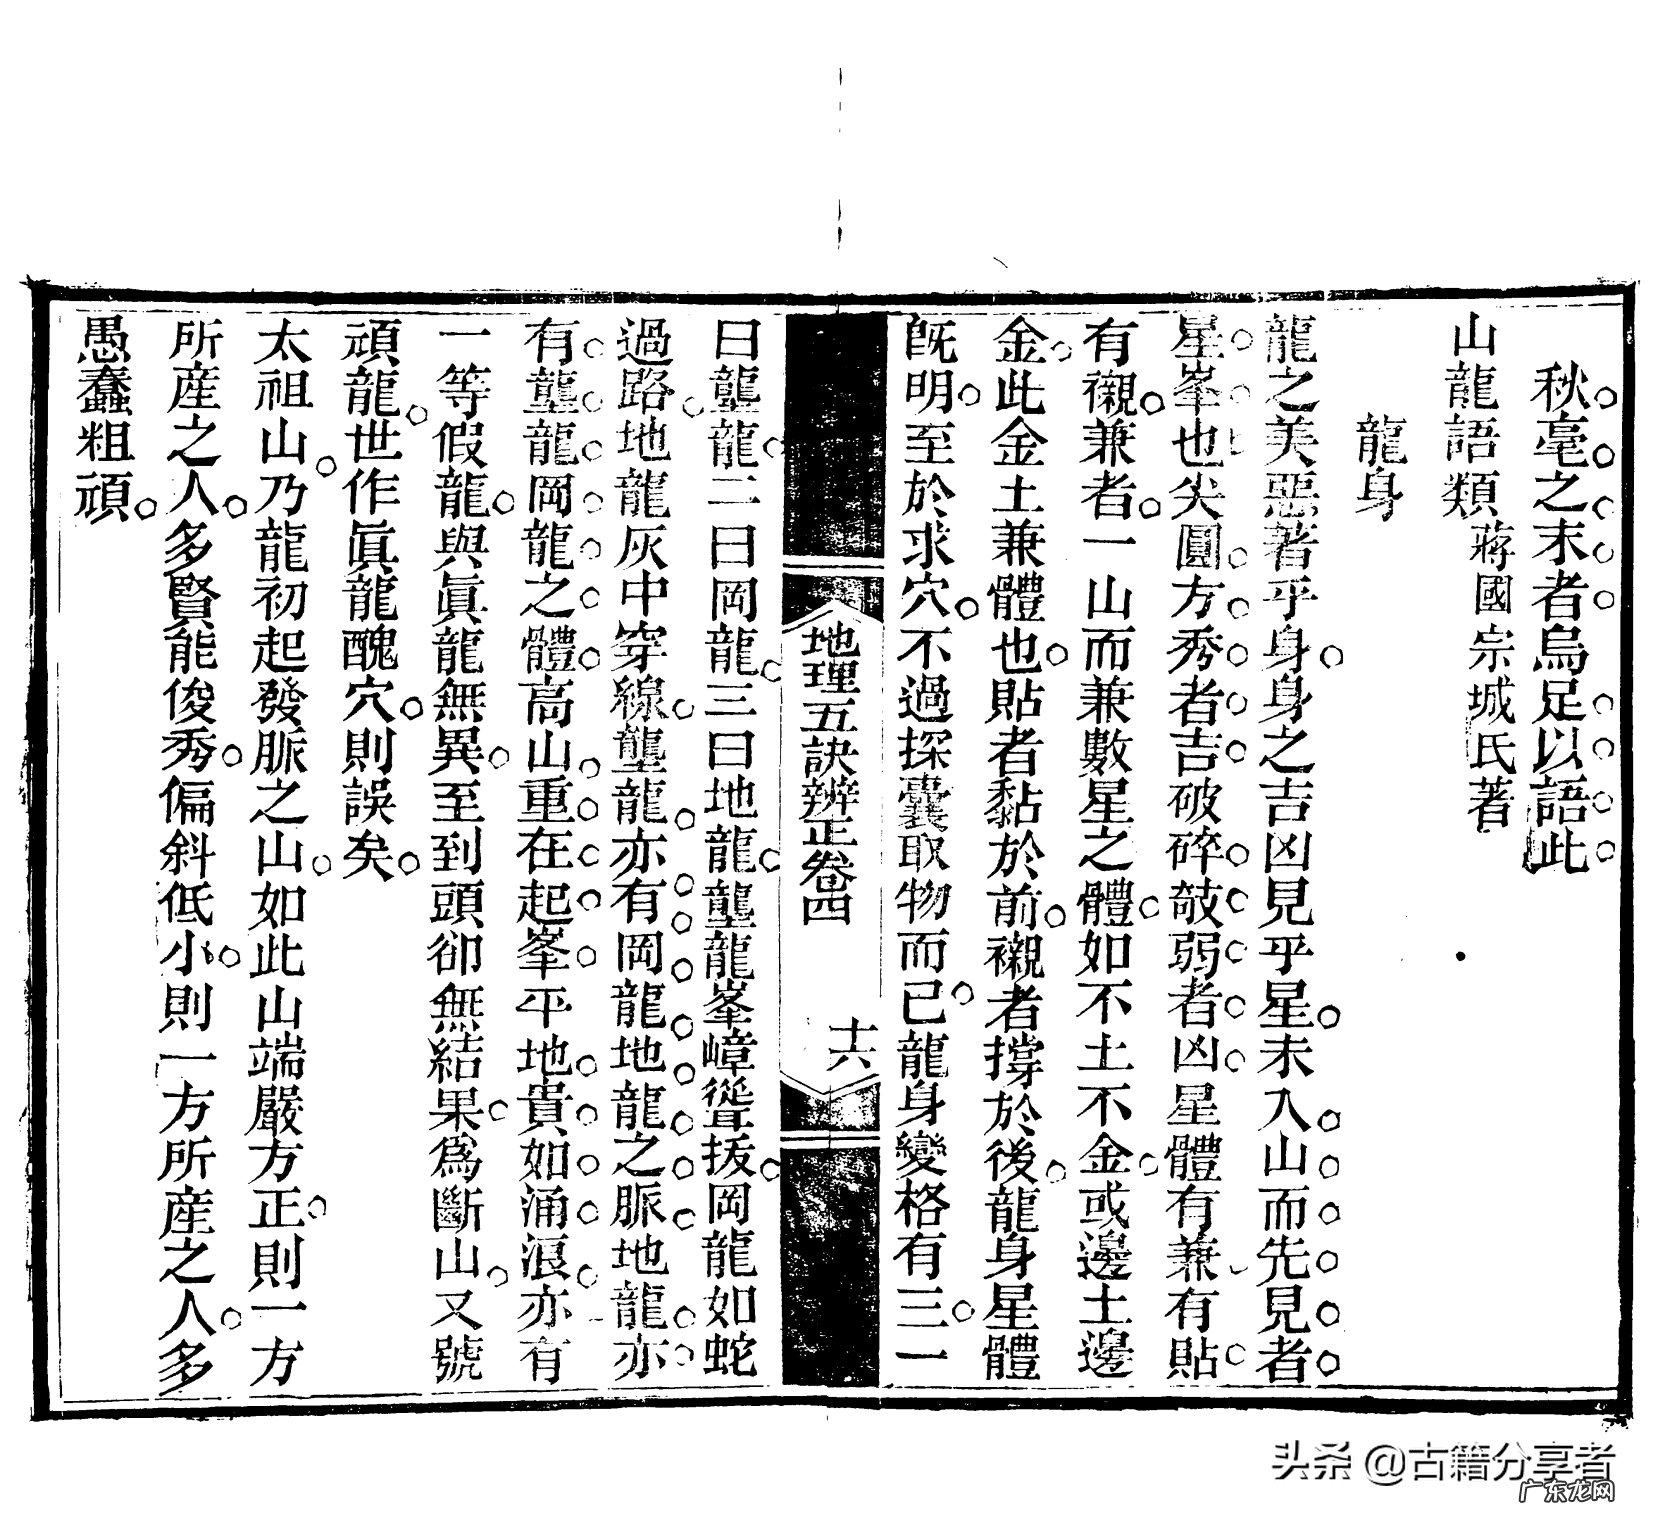 秋毫之末者烏足以語此
山龍語類 蔣國宗城氏著
龍身
龍之美惡著乎身身之吉凶見乎星未入山而先見者
星峯也尖圓方秀者吉破碎攲弱者凶星體有兼有貼
有襯兼者一山而兼數星之體如不土不金或邊土邊
金此金土兼體也貼者黏於前襯者撐於後龍身星體
旣明至於求穴不過探囊取物而已龍身變格有三一
地理五訣辨正卷四
十六
曰壟龍二曰岡龍三曰地龍壟龍峯嶂聳拔岡龍如蛇
過路地龍灰中穿線壟龍亦有岡龍地龍之脈地龍亦
有壟龍岡龍之體高山重在起峯平地貴如涌浪亦有
一等假龍與眞龍無異至到頭卻無結果爲斷山又號
頑龍世作眞龍醜穴則誤矣
太祖山乃龍初起發脈之山如此山端嚴方正則一方
所産之人多賢能俊秀偏斜低小則一方所産之人多
愚蠢粗頑
头条 @古籍分享者
广东龙网